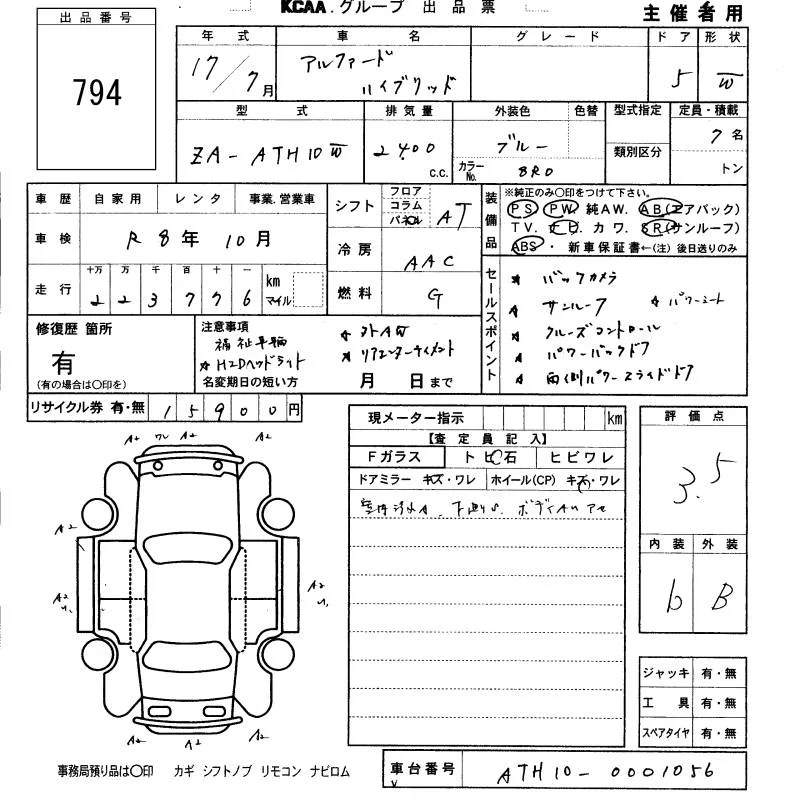 KCAA.グループ 出品票
主催者用
出品番号
794
年式 車名 グレード ドア 形状
17/7月 アルファード ハイブリッド 5 W
型式 排気量 外装色 色替 型式指定 定員・積載
ZA-ATH10W 2400 c.c. ブルー 7名
カラーNo. 8R0 類別区分 トン
車歴 自家用 レンタ 事業.営業車
車検 R8年10月
走行 十万 万 千 百 十 一
223776 km マイル
シフト フロア コラム パネル AT
冷房 AAC
燃料 G
装備品
※純正のみ○印をつけて下さい。
PS PW 純AW. AB(エアバック)
TV. ナビ カワ. SR(サンルーフ)
ABS ・ 新車保証書←(注)後日送りのみ
セールスポイント
バックカメラ
サンルーフ パワーシート
クルーズコントロール
パワーバックドア
両側パワースライドドア
修復歴 箇所
有
(有の場合は○印を)
注意事項
福祉車輌
HIDヘッドライト
外AW
リアエンターテイメント
名変期日の短い方 月 日まで
リサイクル券 有・無 15900円
現メーター指示 km
【査定員記入】
Fガラス トビ石 ヒビワレ
ドアミラー キズ・ワレ ホイール(CP) キズ・ワレ
下廻りS. ボディAU
評価点
3.5
内装 外装
b B
A2 ワレ A2 A2
A2
A2 A2
A2 A2 A2
ジャッキ 有・無
工具 有・無
スペアタイヤ 有・無
事務局預り品は○印 カギ シフトノブ リモコン ナビロム
車台番号 ATH10-0001056